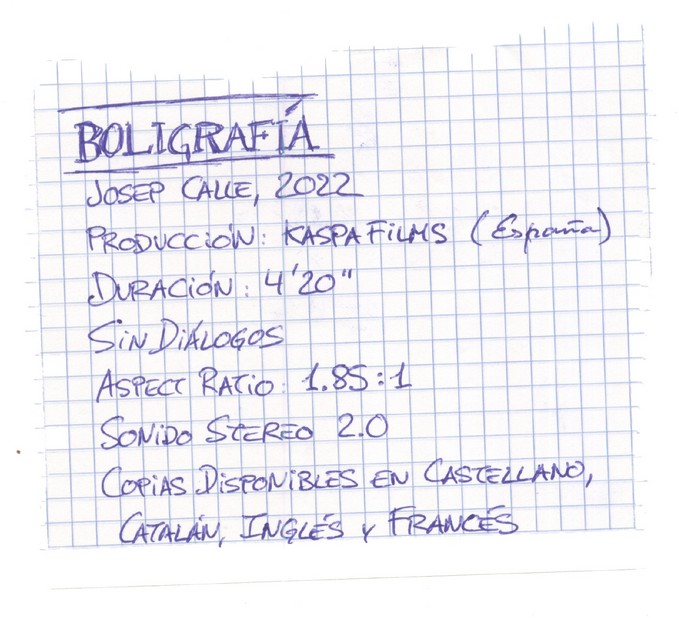 BOLIGRAFÍA
JOSEP CALLE, 2022
PRODUCCIÓN: KASPA FILMS (España)
DURACIÓN: 4'20"
SIN DIÁLOGOS
ASPECT RATIO: 1.85:1
SONIDO STEREO 2.0
COPIAS DISPONIBLES EN CASTELLANO,
CATALÁN, INGLÉS Y FRANCÉS